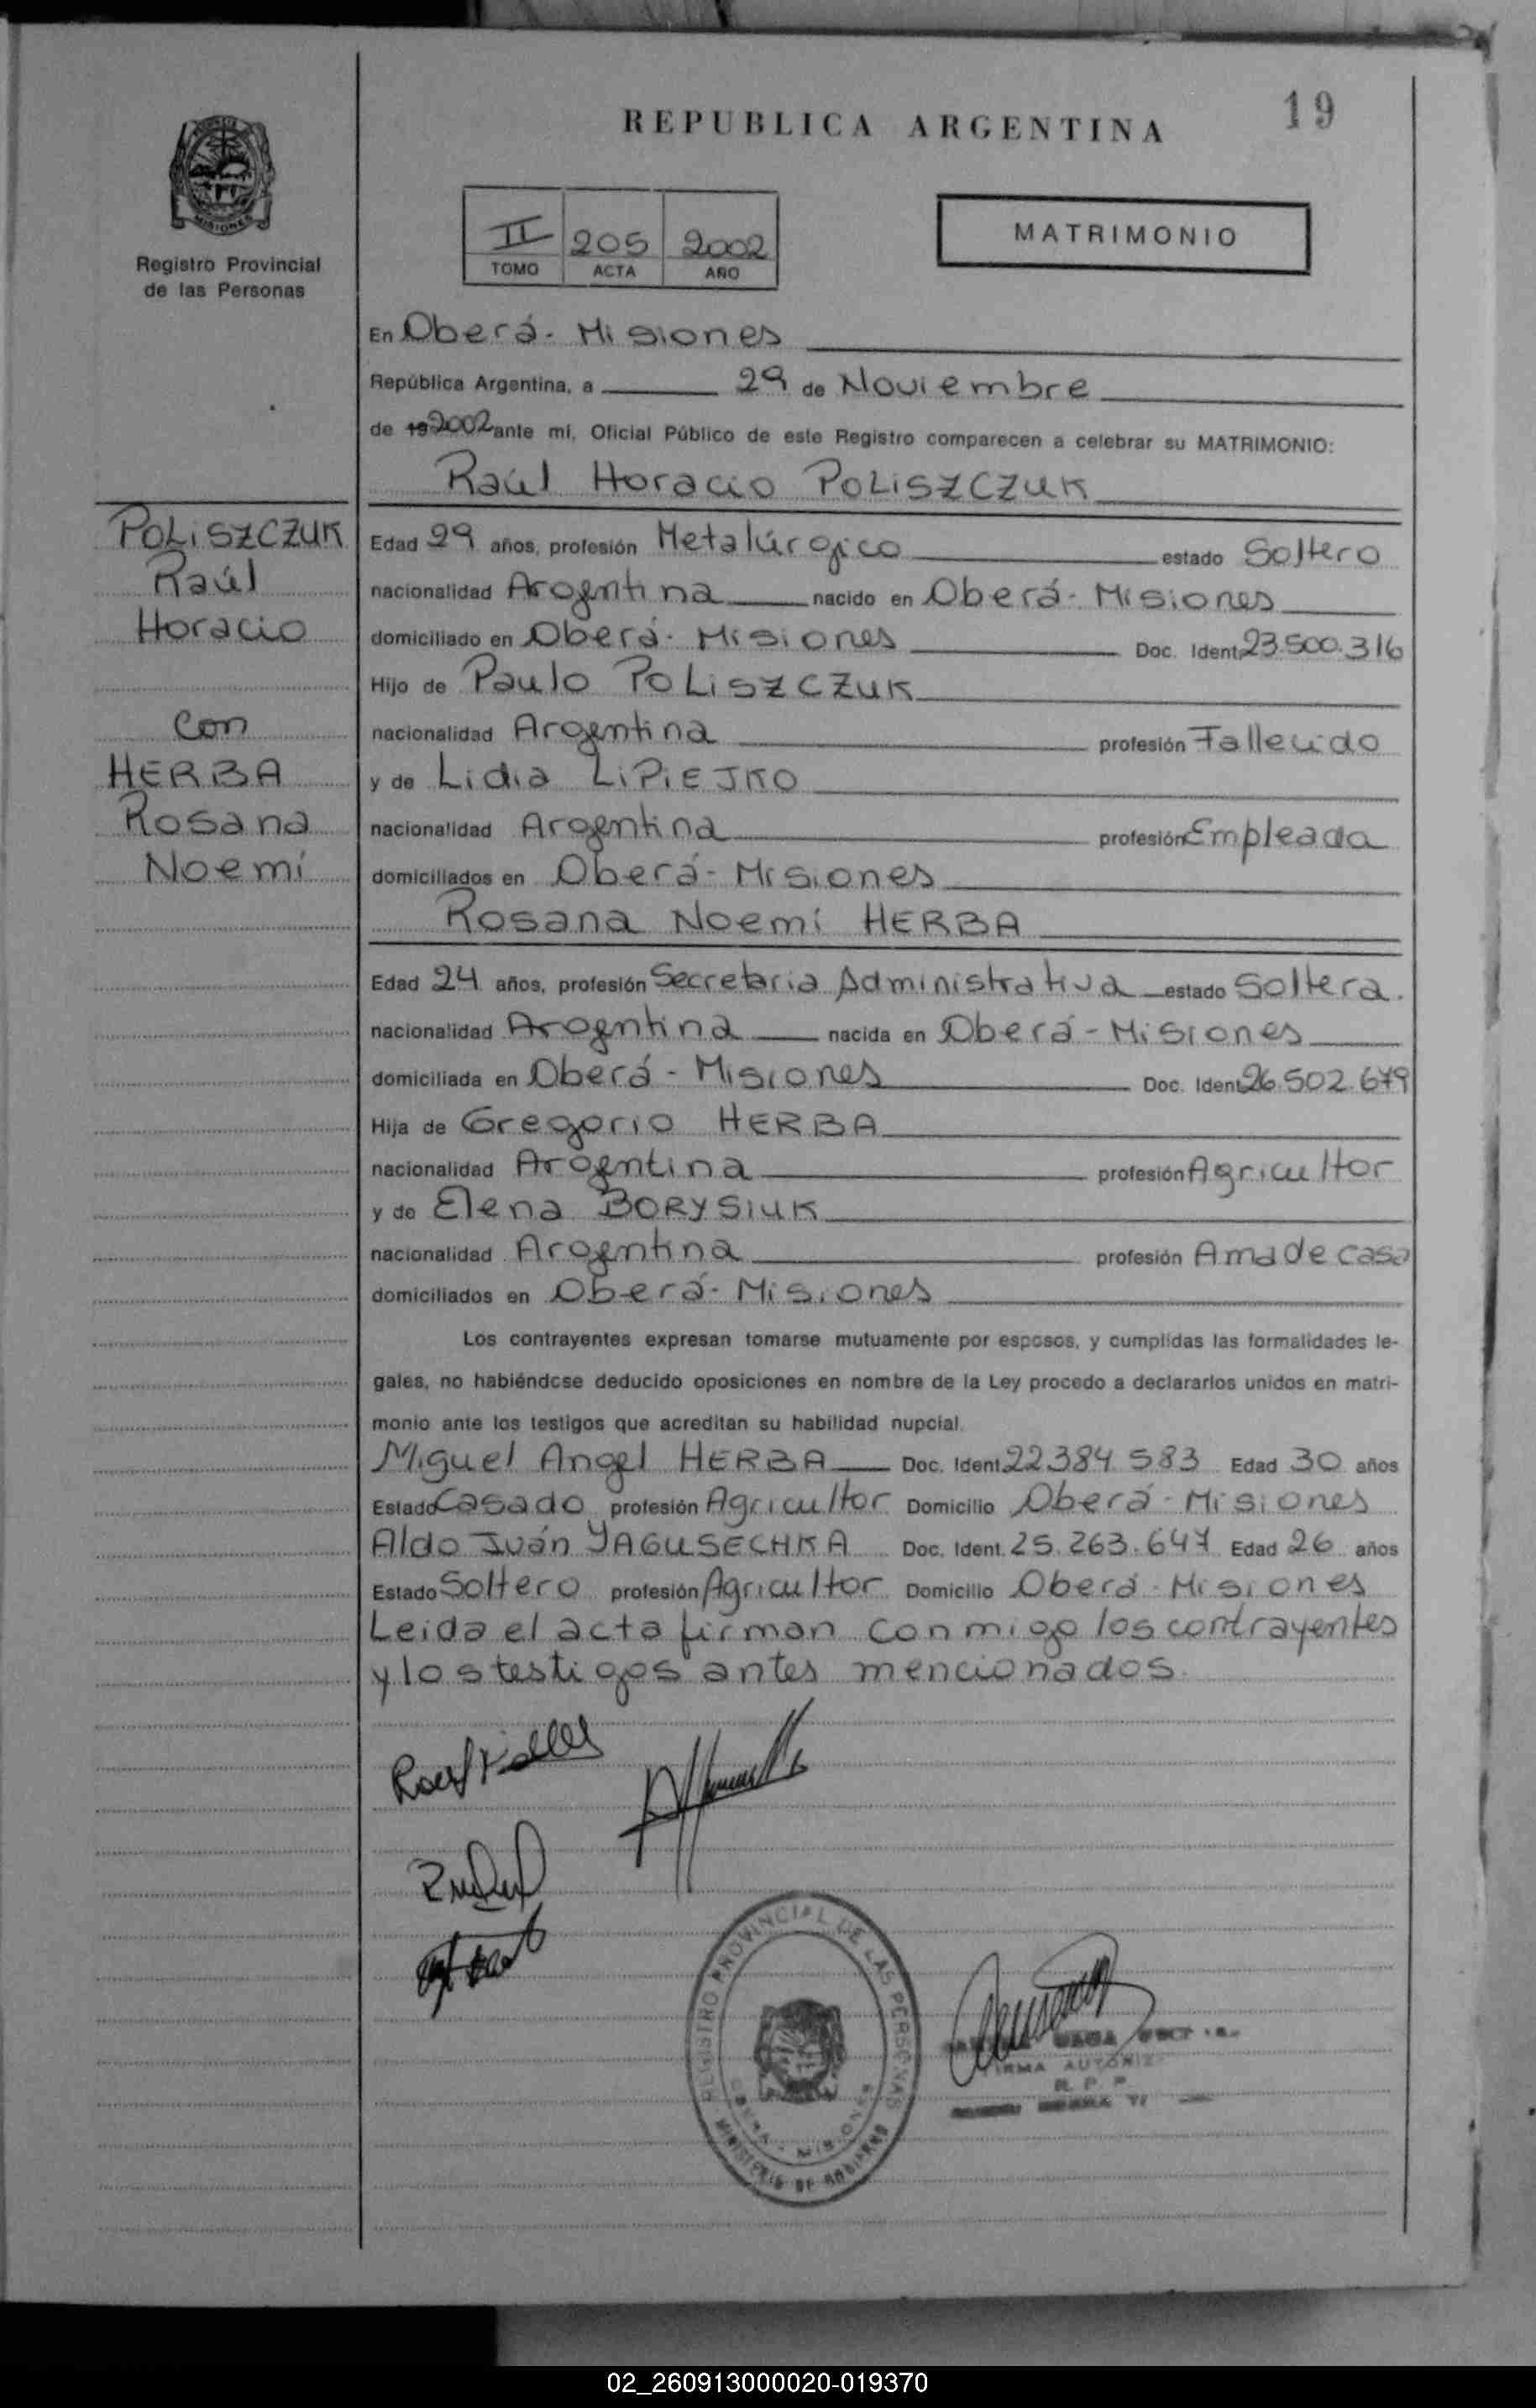 REPUBLICA ARGENTINA
19
MISIONES
Registro Provincial
de las Personas
II 205 2002
TOMO ACTA AÑO
MATRIMONIO
En Oberá - Misiones
República Argentina, a 29 de Noviembre
de 19 2002 ante mí, Oficial Público de este Registro comparecen a celebrar su MATRIMONIO:
Raúl Horacio POLISZCZUK
POLISZCZUK
Raúl
Horacio
con
HERBA
Rosana
Noemí
Edad 29 años, profesión Metalúrgico estado Soltero
nacionalidad Argentina nacido en Oberá - Misiones
domiciliado en Oberá - Misiones Doc. Ident. 23.500.316
Hijo de Paulo POLISZCZUK
nacionalidad Argentina profesión Fallecido
y de Lidia LIPIEJKO
nacionalidad Argentina profesión Empleada
domiciliados en Oberá - Misiones
Rosana Noemí HERBA
Edad 24 años, profesión Secretaria Administrativa estado Soltera.
nacionalidad Argentina nacida en Oberá - Misiones
domiciliada en Oberá - Misiones Doc. Ident. 26.502.679
Hija de Gregorio HERBA
nacionalidad Argentina profesión Agricultor
y de Elena BORYSIUK
nacionalidad Argentina profesión Ama de casa
domiciliados en Oberá - Misiones
Los contrayentes expresan tomarse mutuamente por esposos, y cumplidas las formalidades le-
gales, no habiéndose deducido oposiciones en nombre de la Ley procedo a declararlos unidos en matri-
monio ante los testigos que acreditan su habilidad nupcial.
Miguel Angel HERBA Doc. Ident. 22384583 Edad 30 años
Estado Casado profesión Agricultor Domicilio Oberá - Misiones
Aldo Iván YAGUSECHKA Doc. Ident. 25.263.647 Edad 26 años
Estado Soltero profesión Agricultor Domicilio Oberá - Misiones
Leida el acta firman conmigo los contrayentes
y los testigos antes mencionados.
REGISTRO PROVINCIAL DE LAS PERSONAS
OBERA - MISIONES
MINISTERIO DE GOBIERNO
FIRMA AUTORIZ
R. P. P.
02_260913000020-019370